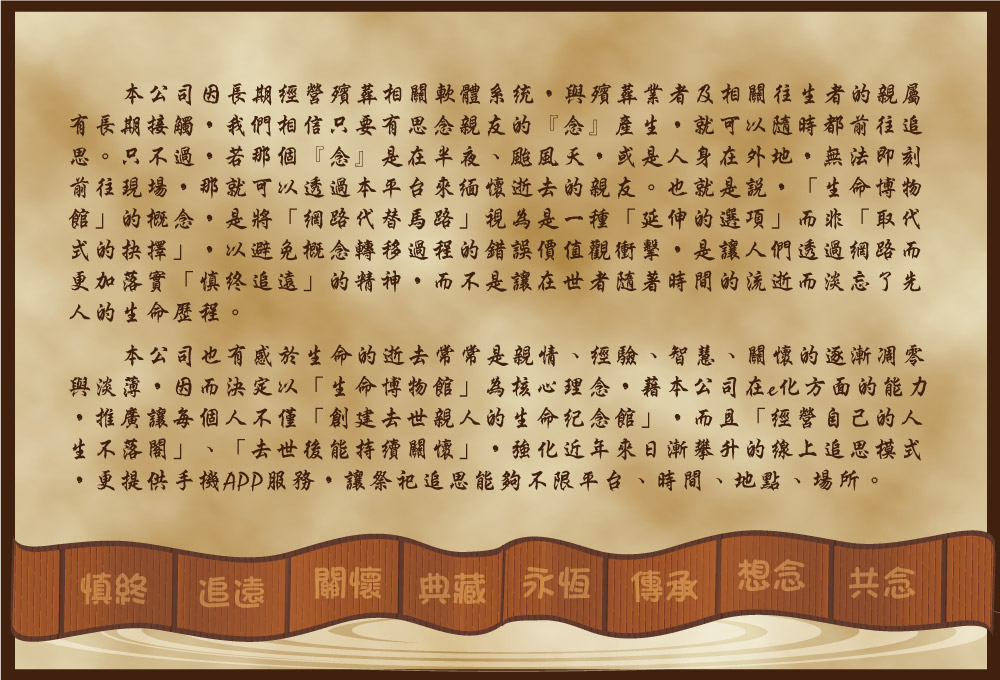 本公司因長期經營殯葬相關軟體系統，與殯葬業者及相關往生者的親屬
有長期接觸，我們相信只要有思念親友的『念』產生，就可以隨時都前往追
思。只不過，若那個『念』是在半夜、颱風天，或是人身在外地，無法即刻
前往現場，那就可以透過本平台來緬懷逝去的親友。也就是說，「生命博物
館」的概念，是將「網路代替馬路」視為是一種「延伸的選項」而非「取代
式的抉擇」，以避免概念轉移過程的錯誤價值觀衝擊，是讓人們透過網路而
更加落實「慎終追遠」的精神，而不是讓在世者隨著時間的流逝而淡忘了先
人的生命歷程。
本公司也有感於生命的逝去常常是親情、經驗、智慧、關懷的逐漸凋零
與淡薄，因而決定以「生命博物館」為核心理念，藉本公司在e化方面的能力
，推廣讓每個人不僅「創建去世親人的生命紀念館」，而且「經營自己的人
生不落閣」、「去世後能持續關懷」，強化近年來日漸攀升的線上追思模式
，更提供手機APP服務，讓祭祀追思能夠不限平台、時間、地點、場所。
慎終 追遠 關懷 典藏 永恆 傳承 想念 共念